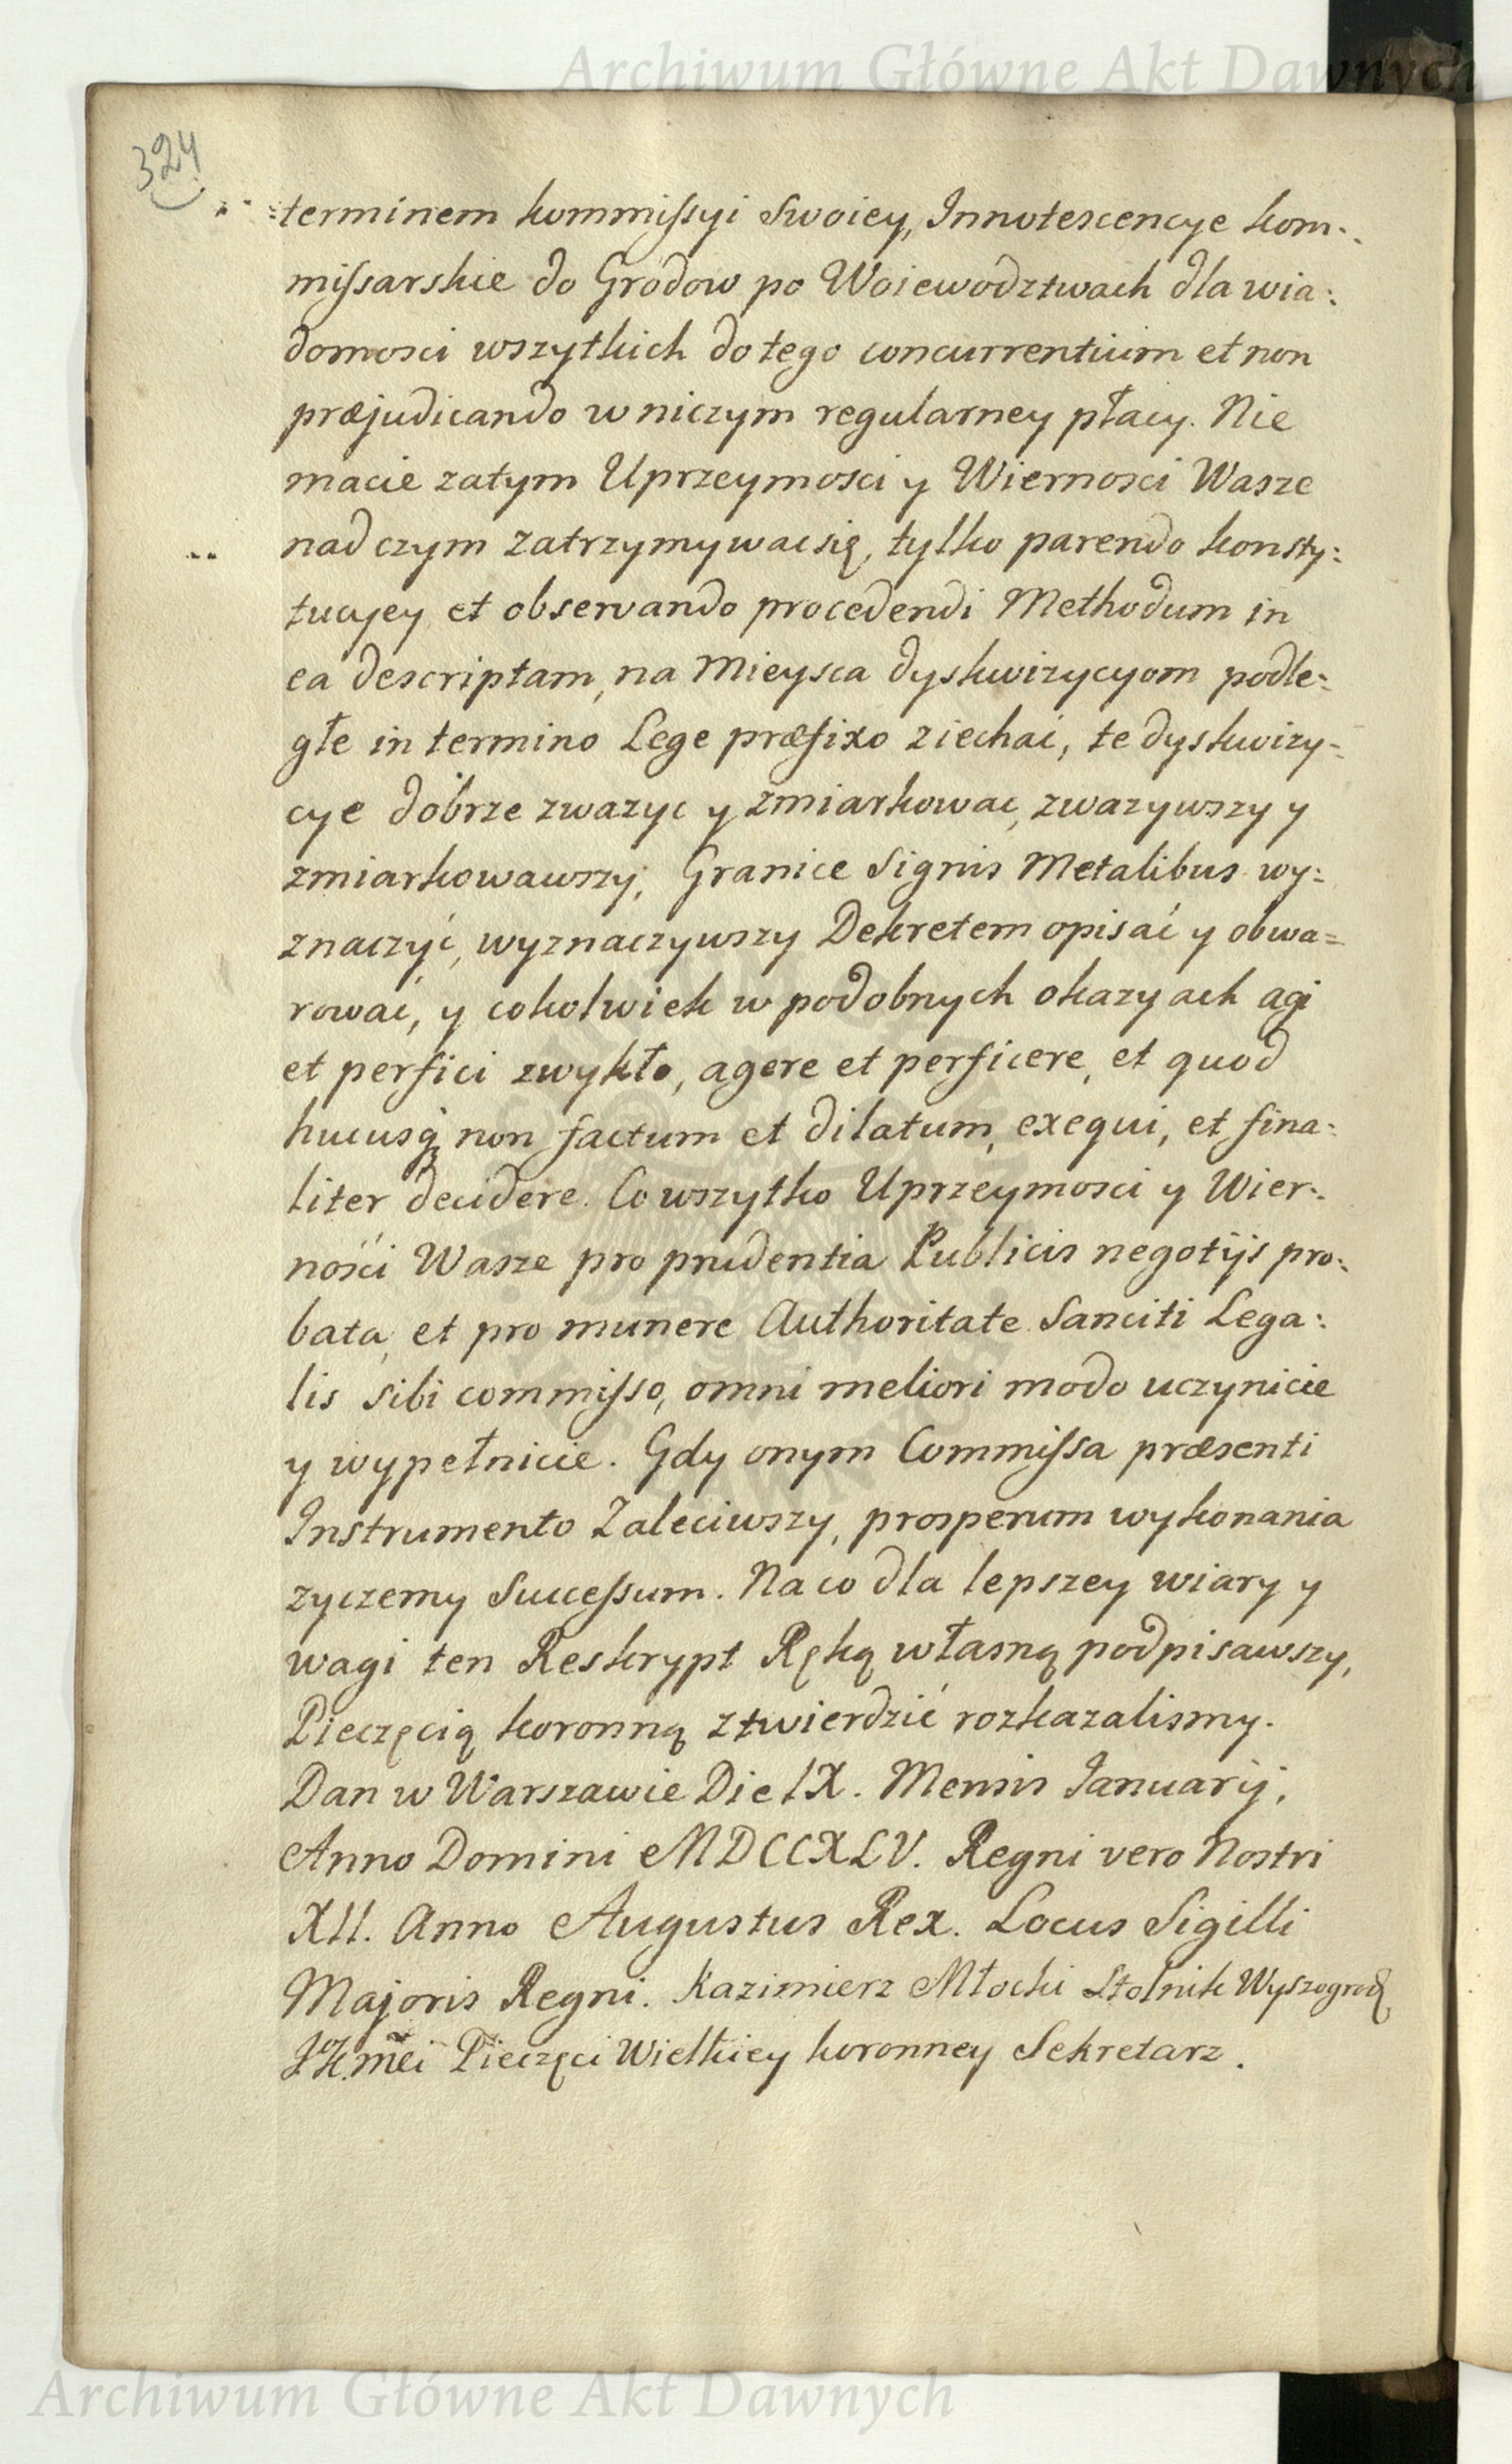 Archiwum Główne Akt Dawnych
324
terminem kommissyi Swoiey, Innotescencye kom:
missarskie do Grodow po Woiewodztwach dla wia:
domosci wszytkich do tego concurrentium et non
præjudicando w niczym regularney płacy. Nie
macie zatym Uprzeymosci y Wiernosci Wasze
nad czym zatrzymywac się, tylko parendo konsty:
tucyey et observando procedendi Methodum in
ea descriptam, na Mieysca dyskwizycyom podle:
głe in termino Lege præfixo ziechać, te dyskwizy:
cye dobrze zwazyc y zmiarkowac, zwazywszy y
zmiarkowawszy, Granice Signis Metalibus wy:
znaczyć, wyznaczywszy Dekretem opisać y obwa=
rować, y cokolwiek w podobnych okazyach agi
et perfici zwykło, agere et perficere, et quod
hucusq non factum et dilatum, exequi, et fina:
liter decidere. Co wszytko Uprzeymosci y Wier:
ności Wasze pro prudentia Publicis negotijs pro:
bata, et pro munere Authoritate Sanciti Lega:
lis sibi commisso, omni meliori modo uczynicie
y wypełnicie. Gdy onym Commissa præsenti
Instrumento Zaleciwszy, prosperum wykonania
zyczemy Successum. Na co dla lepszey wiary y
wagi ten Reskrypt Ręką własną podpisawszy,
Pieczęcią koronną ztwierdzić rozkazalismy.
Dan w Warszawie Die IX. Mensis Januarij,
Anno Domini MDCCXLV. Regni vero Nostri
XII. Anno Augustus Rex. Locus Sigilli
Majoris Regni. Kazimierz Młocki Stolnik Wyszogrod
JKmci Pieczęci Wielkiey koronney Sekretarz.
Archiwum Główne Akt Dawnych